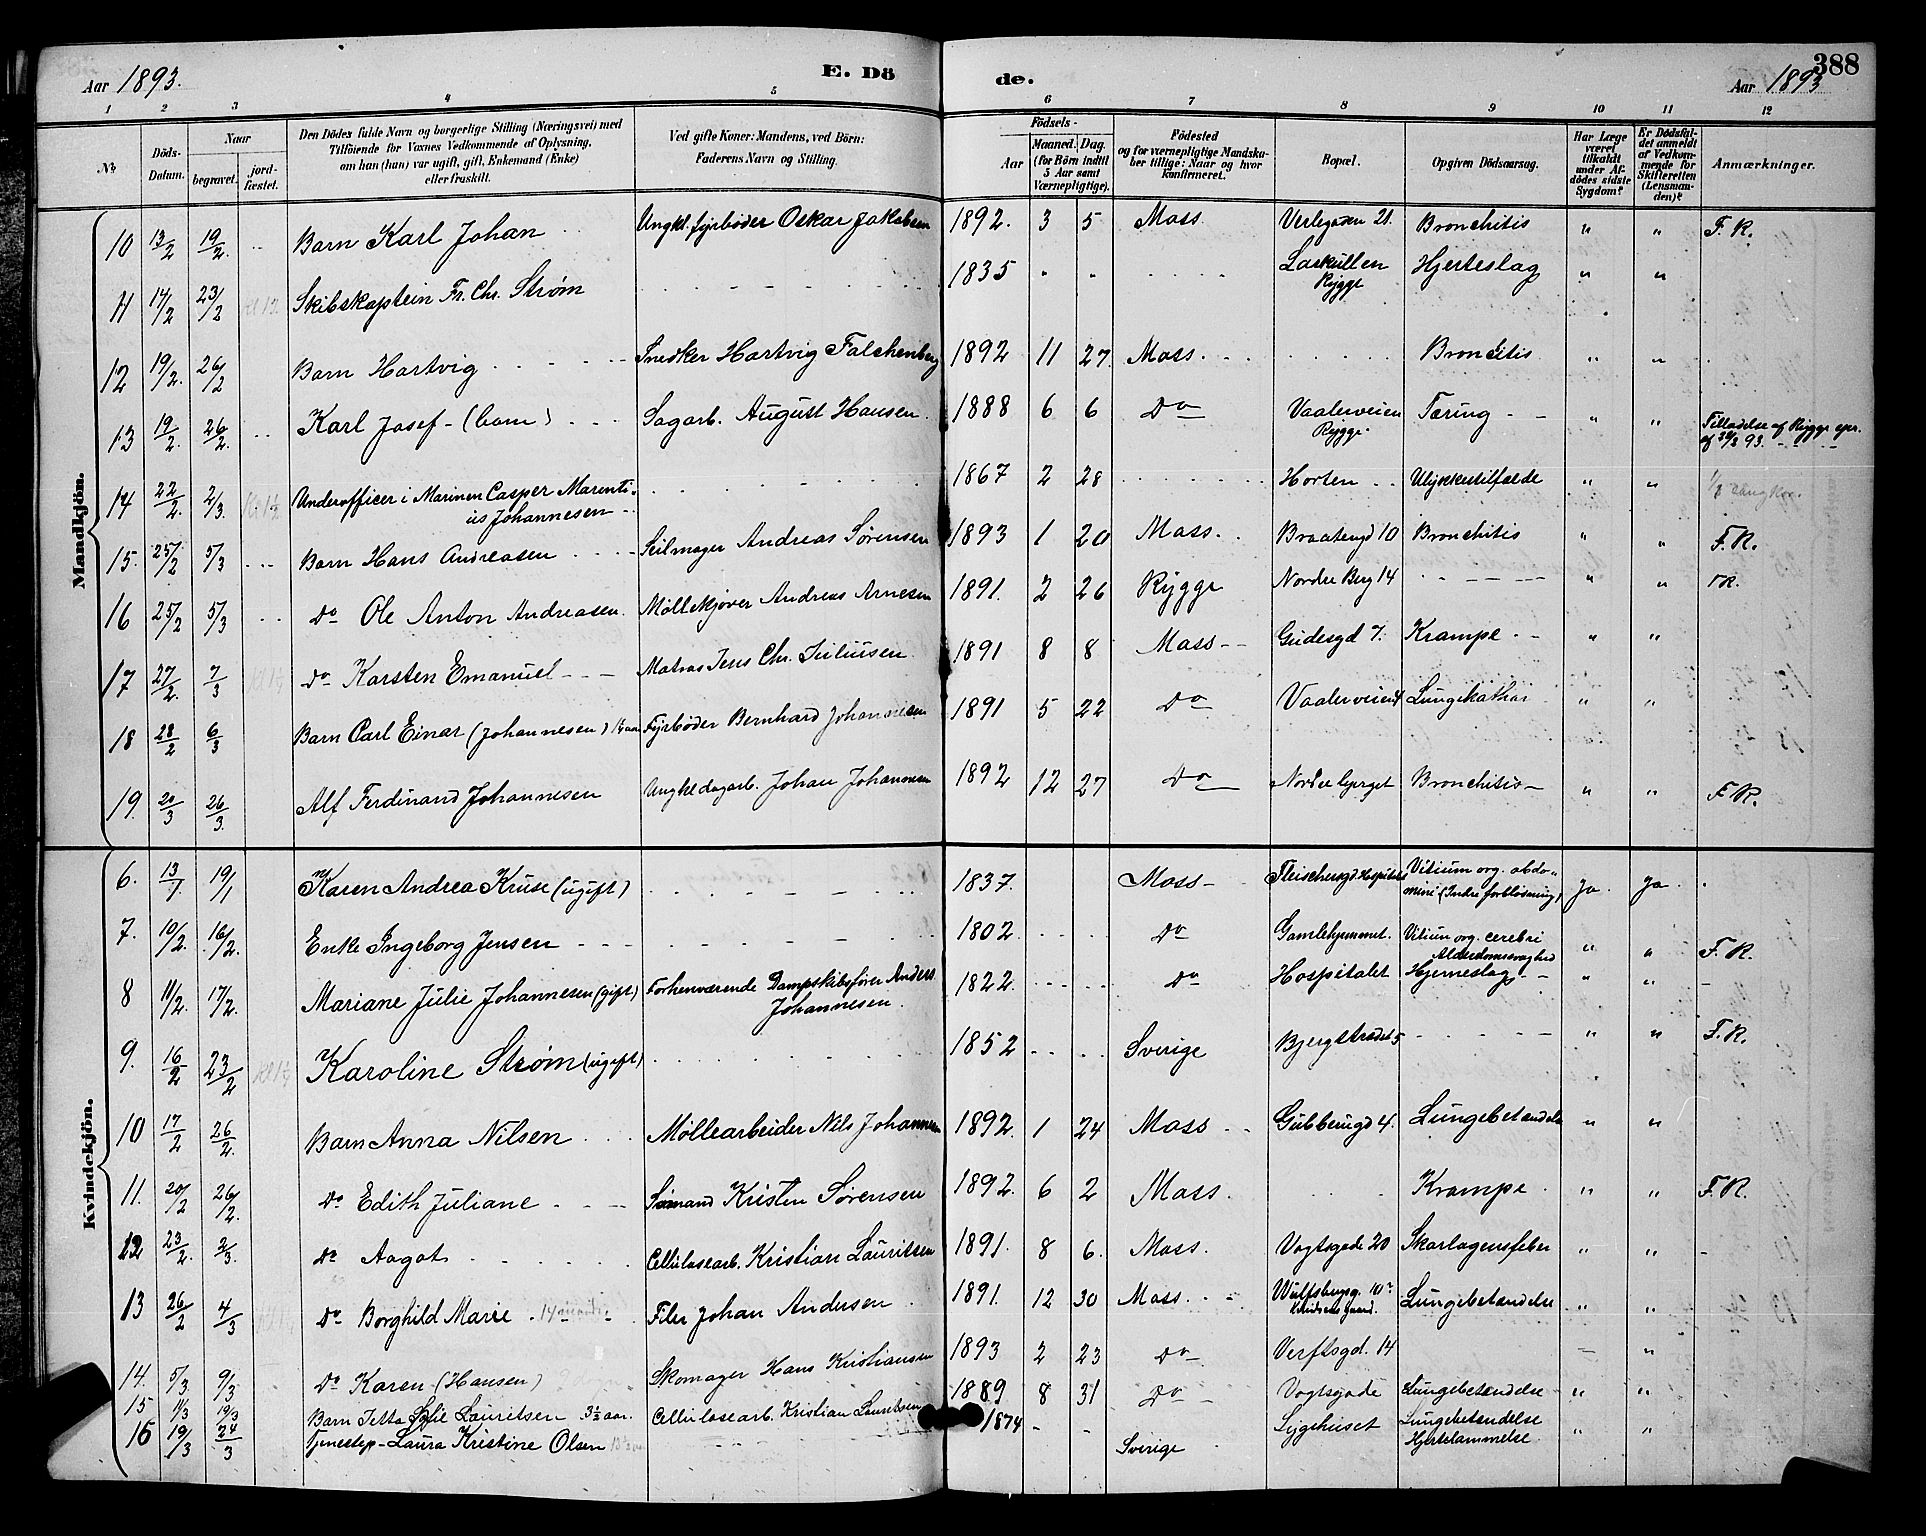 Aar 1893.
E. Dö
de.
388
Aar 1893
1 2 3 4 5 6 7 8 9 10 11 12
No.
Döds-Datum.
Naar
begravet.
jord-fæstet.
Den Dödes fulde Navn og borgerlige Stilling (Næringsvei) med
Tilföiende for Voxnes Vedkommende af Oplysning,
om han (hun) var ugift, gift, Enkemand (Enke)
eller fraskilt.
Ved gifte Koner: Mandens, ved Börn:
Faderens Navn og Stilling.
Födsels-
Aar
Maaned. Dag.
(for Börn indtil
5 Aar samt
Værnepligtige).
Födested
og for værnepligtige Mandska-
ber tillige: Naar og hvor
konfirmeret.
Bopæl.
Opgiven Dödsaarsag.
Har Læge
været
tilkaldt
under Af-
dödes sidste
Sygdom?
Er Dödsfal-
det anmeldt
af Vedkom-
mende for
Skifteretten
(Lensman-
den)?
Anmærkninger.
Mandkjön.
10 13/2 19/2. Barn Karl Johan Ungkl. fyrbøder Oskar Jakobsen 1892. 3 5 Moss Verlegaden 21. Bronchitis " " F. R.
11 14/2 23/2 Skibskaptein Fr. Chr. Strøm 1835 " " Larkullen Rygge Hjerteslag " "
12 19/2. 26/2 Barn Hartvig Snedker Hartvig Falchenberg 1892 11 27 Moss Bronchitis " "
13 19/2. 26/2. Karl Josef - (barn) Sagarb. August Hansen. 1888 6 6 Do Vaalerveien Rygge. Tæring " " Tilladelse af Rygge spr. af
14 22/2. 2/3. Underofficer i Marinen Casper Marenti-
us Johannesen 1867 2 28 Horten Ulykkestilfælde " "
15. 25/2 5/3 Barn Hans Andreasen Seilmager Andreas Sørensen 1893 1 20 Moss. Braatengd 10 Bronchitis " " F. R.
16 25/2 5/3 Do Ole Anton Andreasen. Møllekjører Andreas Arnesen 1891. 2 26 Rygge Nordre Berg 14 " "
17 27/2. 7/3 Do Karsten Emanuel Matros Jens Chr. Juliusen 1891 8 8 Moss Gudesgd 7. Krampe " "
18 28/2 6/3 Barn Carl Einar (Johannesen) Fyrbøder Bernhard Johannesen 1891 5 22 Do Vaalerveien Lungekathar " "
19. 20/3 26/3. Alf Ferdinand Johannesen Ungkl dagarb. Johan Johannesen 1892 12 27 Do Nordre bjerget Bronchitis " " F. R.
Kvindekjön.
6. 13/1 19/1 Karen Andrea Kruse (ugift) 1837. Moss Fleischersgd. Hospitalet Vitium org. abdo-
mini (Indre forblødning) ja ja
7. 10/2. 16/2. Enke Ingeborg Jensen 1802. Do Gamlehjemmet. Vitium org. cerebri
Alderdomssvaghed " " F. R.
8 11/2. 17/2. Mariane Julie Johannesen (gift) Forhenværende Dampskibsfører Anders
Johannesen. 1822. Do Hospitalet Hjerneslag " "
9. 16/2 23/2 Karoline Strøm (ugift) 1852 Sverige Bjergstrædet 5 " " F. R.
10 17/2 26/2. Barn Anna Nilsen Møllearbeider Nils Johannesen 1892. 1 24 Moss Gubberugd 4. Lungebetændelse " "
11. 20/2 26/2. Do Edith Juliane Sømand Kristen Sørensen 1892. 6 2 Moss. Krampe " " F. R.
12 23/2. 2/3. Do Aagot Cellulosearb. Kristian Lauritsen 1891. 8 6. Moss. Vogtsgade 20 Skarlagensfeber " "
13 26/2 4/3 Do Borghild Marie Filer Johan Andersen 1891. 12 30 Moss. Wulfsbergsg. Lungebetændelse " "
14. 5/3. 9/3 Do Karen (Hansen) Skomager Hans Kristiansen 1893 2 23 Do Verftsgd. 14 "
15 11/3 19/3 Barn Jetta Sofie Lauritsen 3½ aar. Cellulosearb. Kristian Lauritsen 1889 8 31 Do Vogtsgade Lungebetændelse " "
16 19/3 24/3 Tjenestep. Laura Kristine Olsen 1874 Sverige Sygehuset Lungebetændelse
Hjertelammelse " "